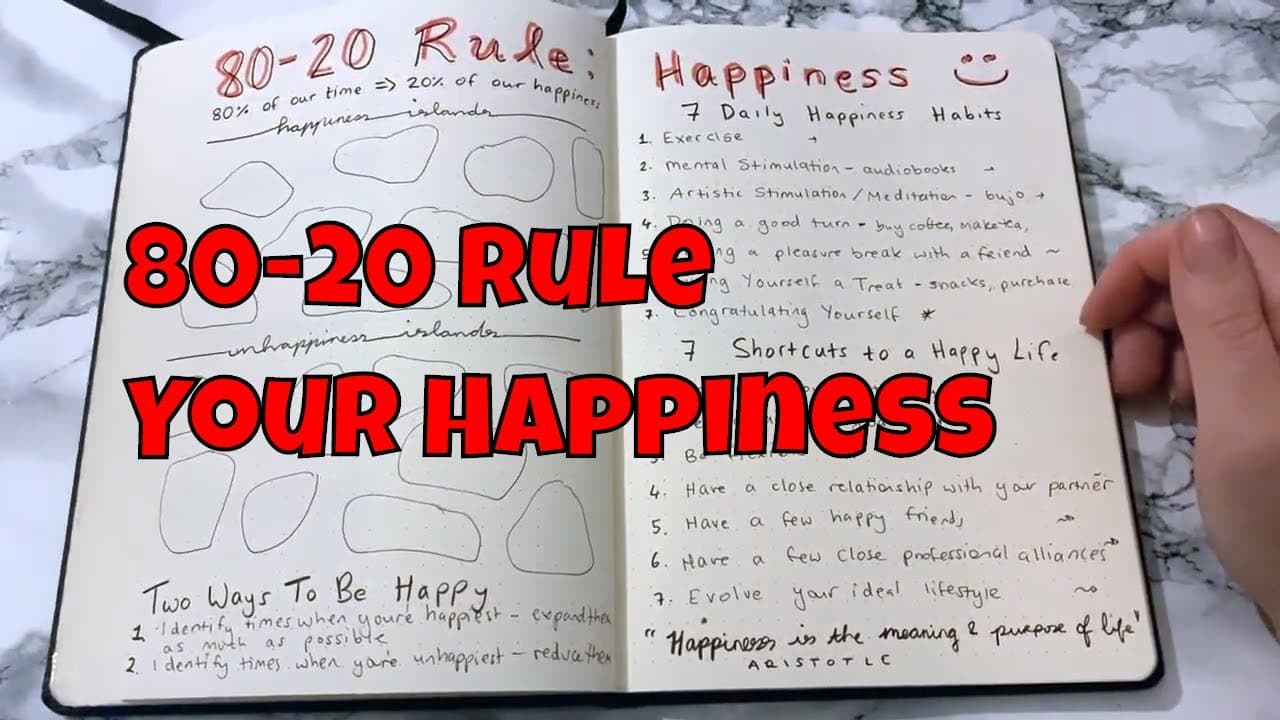 80-20 Rule:
80% of our time => 20% of our happiness
happiness islands
unhappiness islands
Two Ways To Be Happy
1. Identify times when you're happiest - expand them
as much as possible
2. Identify times when you're unhappiest - reduce them
Happiness
7 Daily Happiness Habits
1. Exercise →
2. Mental Stimulation - audiobooks →
3. Artistic Stimulation / Meditation - bujo →
4. Doing a good turn - buy coffee, make tea,
a pleasure break with a friend ~
Yourself a Treat - snacks, purchase,
7. Congratulating Yourself *
7 Shortcuts to a Happy Life
4. Have a close relationship with your partner ~
5. Have a few happy friends ~
6. Have a few close professional alliances ~
7. Evolve your ideal lifestyle ~
"Happiness is the meaning & purpose of life"
ARISTOTLE
80-20 Rule
Your Happiness